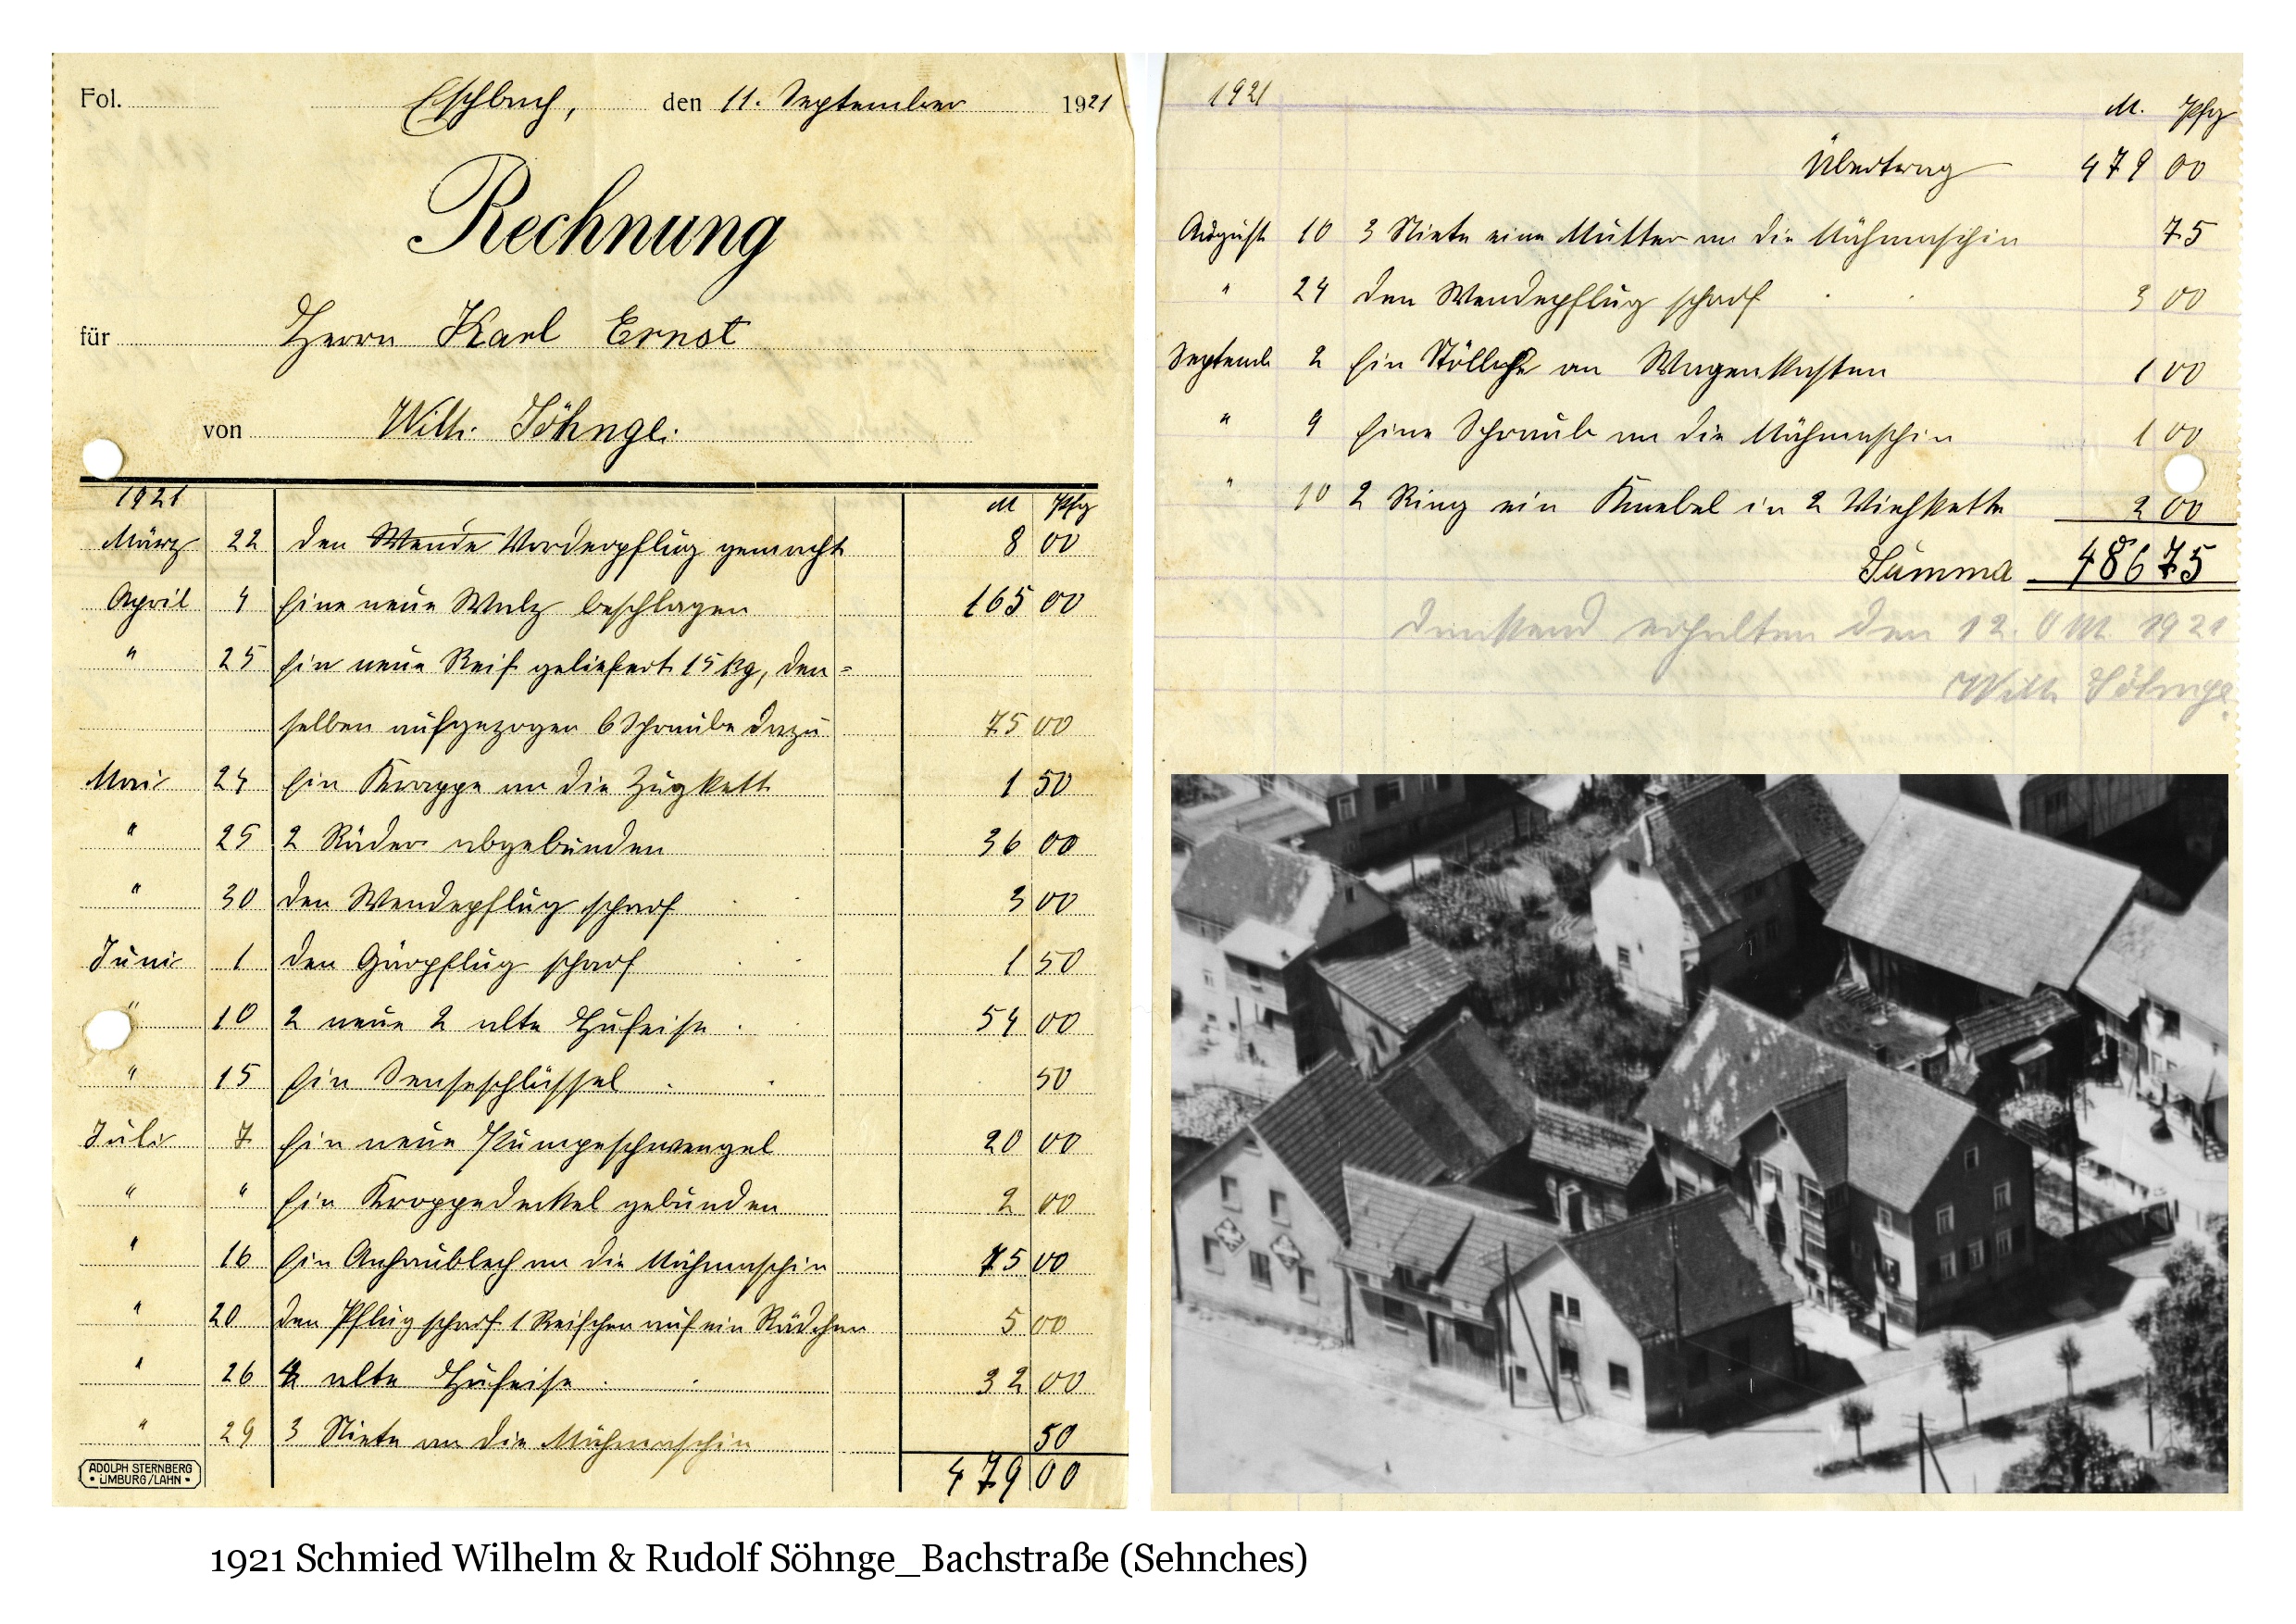 Fol. Eschbach, den 11. September 1921
Rechnung
für Herrn Karl Ernst
von Wilh. Söhnge.
1921 M Pfg
März 22 den Wende Vorderpflug gemacht 8 00
April 4 Eine neue Walz beschlagen 165 00
" 25 Ein neue Reif geliefert 15 kg, den=
selben aufgezogen 6 Schraube dazu 75 00
Mai 24 Ein Krappe an die Zugkett 1 50
" 25 2 Räder abgebunden 36 00
" 30 den Wendepflug scharf 3 00
Juni 1 den Gärpflug scharf 1 50
" 10 2 neue 2 alte Hufeise 54 00
" 15 Ein Senseschlüssel 50
Juli 7 Ein neue Pumpeschwengel 20 00
" " Ein Kroppedeckel gebunden 2 00
" 16 Ein Anhaublech an die Mähmaschin 75 00
" 20 den Pflug scharf 1 Reifchen auf ein Rädchen 5 00
" 26 4 alte Hufeise 32 00
" 29 3 Niete an die Mähmaschin 50
479 00
ADOLPH STERNBERG
• LIMBURG/LAHN •
1921
M. Pfg
Übertrag 479 00
August 10 3 Niete eine Mutter an die Mähmaschin 75
" 24 den Wendepflug scharf 3 00
Septemb 2 Ein an Wagenkasten 1 00
" 9 Eine Schraub an die Mähmaschin 1 00
" 10 2 Ring ein Knebel in 2 Viehkette 2 00
Summa 486 75
Dankend erhalten den 12. 1921
Wilh Söhnge.
1921 Schmied Wilhelm & Rudolf Söhnge_Bachstraße (Sehnches)